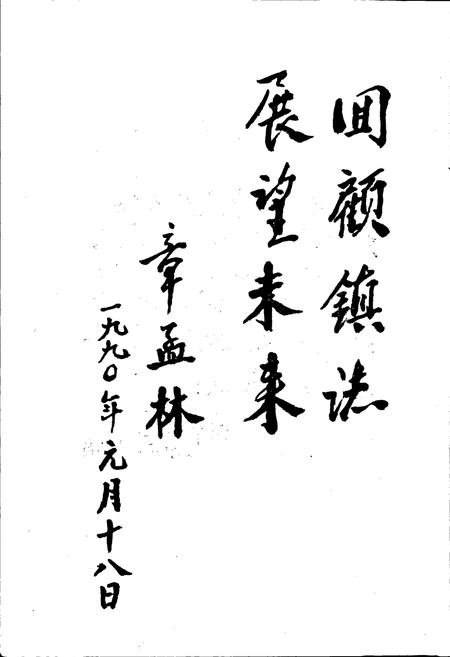 回顾镇誌
展望未来
章孟林
一九九〇年元月十八日